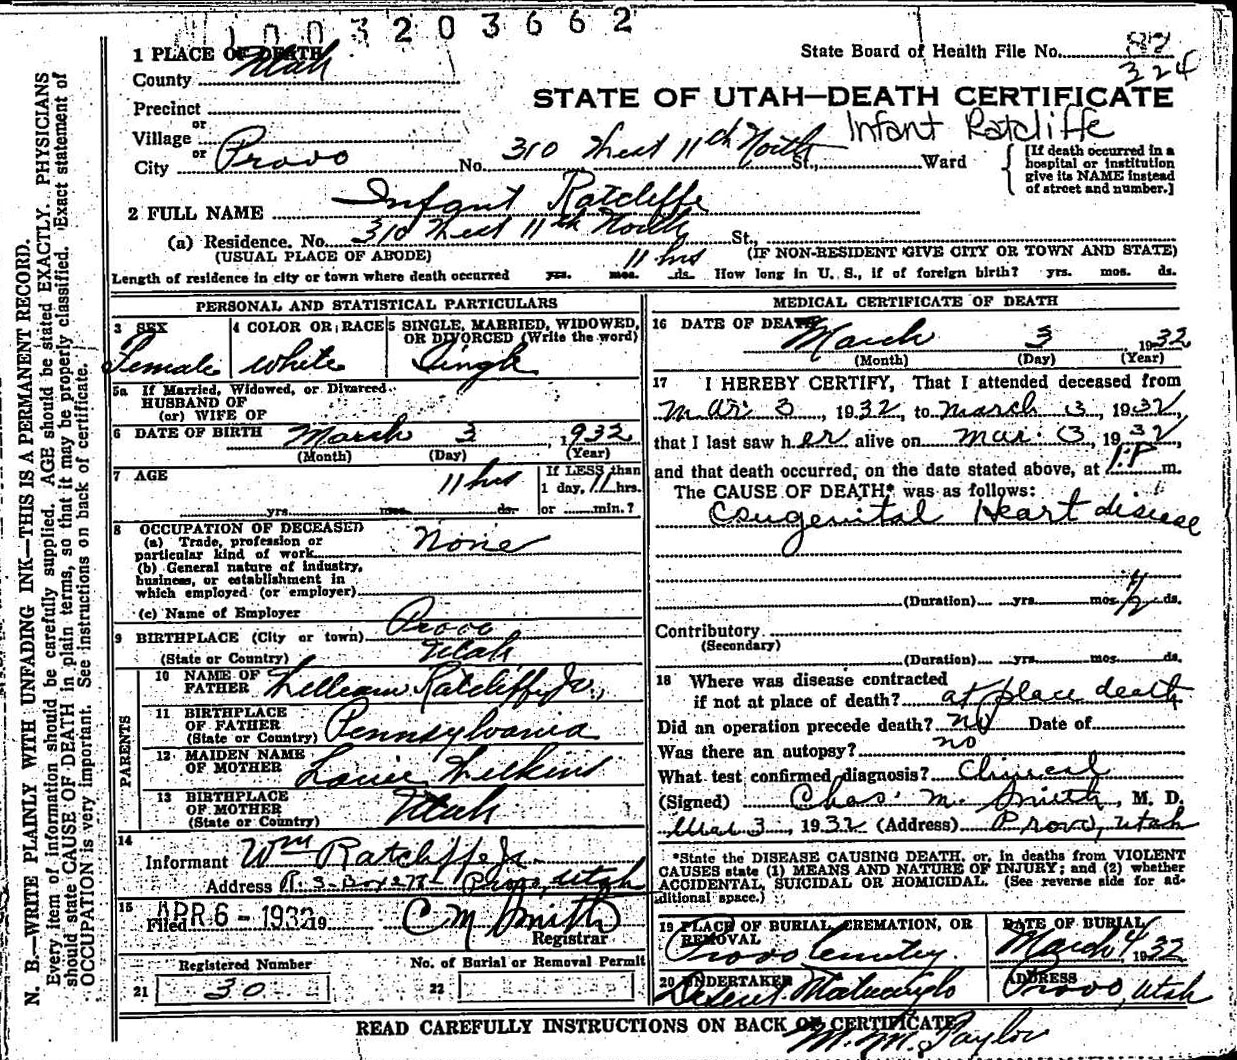 1003203662
1 PLACE OF DEATH
State Board of Health File No. 82
324
County Utah
STATE OF UTAH—DEATH CERTIFICATE
Precinct
or
Village
Infant Ratcliffe
or
City Provo No. 310 West 11th North St., Ward
[If death occurred in a hospital or institution give its NAME instead of street and number.]
2 FULL NAME Infant Ratcliffe
(a) Residence. No. 310 West 11th North St.,
(USUAL PLACE OF ABODE) (IF NON-RESIDENT GIVE CITY OR TOWN AND STATE)
11 hrs
Length of residence in city or town where death occurred yrs. mos. ds. How long in U. S., if of foreign birth? yrs. mos. ds.
PERSONAL AND STATISTICAL PARTICULARS
3 SEX 4 COLOR OR RACE 5 SINGLE, MARRIED, WIDOWED, OR DIVORCED (Write the word)
Female white Single
5a If Married, Widowed, or Divorced
HUSBAND OF
(or) WIFE OF
6 DATE OF BIRTH March 3, 1932
(Month) (Day) (Year)
7 AGE 11 hrs If LESS than
1 day, 11 hrs.
yrs. mos. ds. or min.?
8 OCCUPATION OF DECEASED
(a) Trade, profession or
particular kind of work None
(b) General nature of industry,
business, or establishment in
which employed (or employer)
(c) Name of Employer
9 BIRTHPLACE (City or town) Provo
(State or Country) Utah
PARENTS
10 NAME OF FATHER William Ratcliffe Jr.,
11 BIRTHPLACE
OF FATHER
(State or Country) Pennsylvania
12 MAIDEN NAME
OF MOTHER Wilkins
13 BIRTHPLACE
OF MOTHER
(State or Country) Utah
14
Informant Wm Ratcliffe Jr.
Address R. 3 - Box Provo, Utah
15 Filed APR 6 - 1932 19 C M Smith
Registrar
Registered Number No. of Burial or Removal Permit
21 30 22
MEDICAL CERTIFICATE OF DEATH
16 DATE OF DEATH March 3 1932
(Month) (Day) (Year)
17 I HEREBY CERTIFY, That I attended deceased from
Mar. 3, 1932, to March 3, 1932,
that I last saw her alive on Mar. 3, 1932,
and that death occurred, on the date stated above, at 1 P m.
The CAUSE OF DEATH* was as follows:
Congenital Heart disease
(Duration) yrs. mos. 1/2 ds.
Contributory
(Secondary)
(Duration) yrs. mos. ds.
18 Where was disease contracted
if not at place of death? at place death
Did an operation precede death? no Date of
Was there an autopsy? no
What test confirmed diagnosis? Clinical
(Signed) Chas. M. Smith, M. D.
Mar 3, 1932 (Address) Provo, Utah
*State the DISEASE CAUSING DEATH, or, in deaths from VIOLENT
CAUSES state (1) MEANS AND NATURE OF INJURY; and (2) whether
ACCIDENTAL, SUICIDAL OR HOMICIDAL. (See reverse side for ad-
ditional space.)
19 PLACE OF BURIAL, CREMATION, OR
REMOVAL
Provo Cemetery.
DATE OF BURIAL
March 4 1932
20 UNDERTAKER
Deseret
ADDRESS
Provo, Utah
READ CAREFULLY INSTRUCTIONS ON BACK OF CERTIFICATE
M. M. Taylor
N. B.—WRITE PLAINLY WITH UNFADING INK—THIS IS A PERMANENT RECORD.
Every item of information should be carefully supplied. AGE should be stated EXACTLY. PHYSICIANS
should state CAUSE OF DEATH in plain terms, so that it may be properly classified. Exact statement of
OCCUPATION is very important. See instructions on back of certificate.